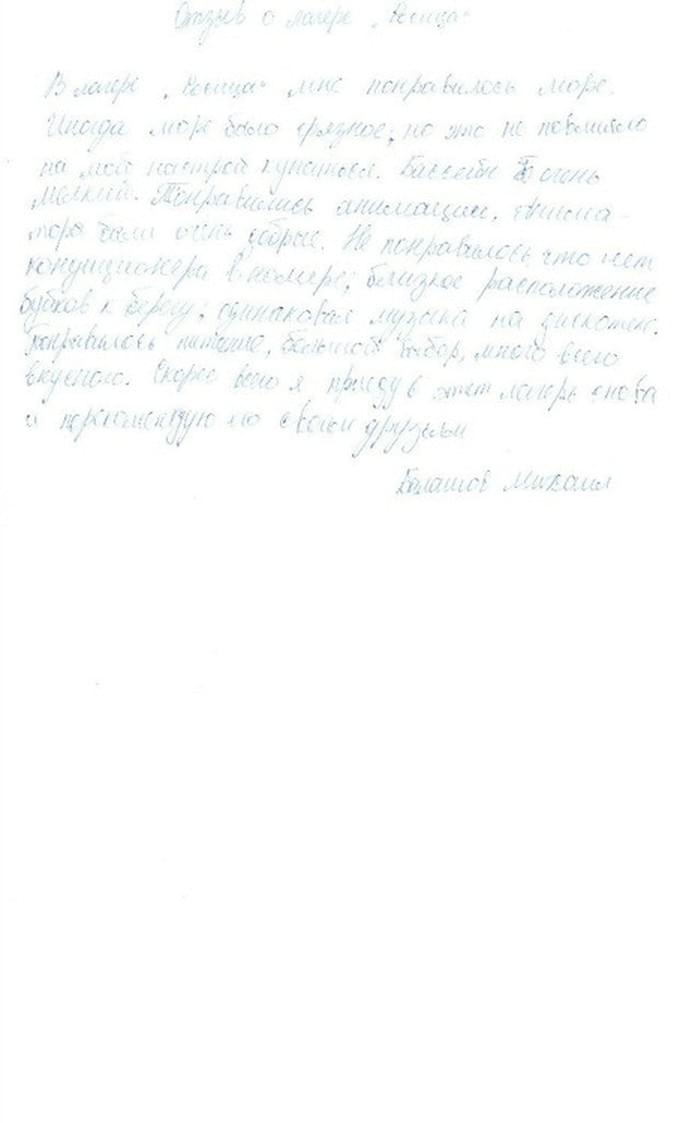 Отзыв о лагере „Росица"
В лагере „Росица" мне понравилось море.
Иногда море было грязное, но это не повлияло
на мой настрой купаться. Бассейн очень
мелкий. Понравились анимации, анима-
торы были очень добрые. Не понравилось, что нет
кондиционера в номере; близкое расположение
буйков к берегу; одинаковая музыка на дискотеке.
Понравилось питание, большой выбор, много всего
вкусного. Скорее всего я приеду в этот лагерь снова
и порекомендую его своим друзьям
Балашов Михаил